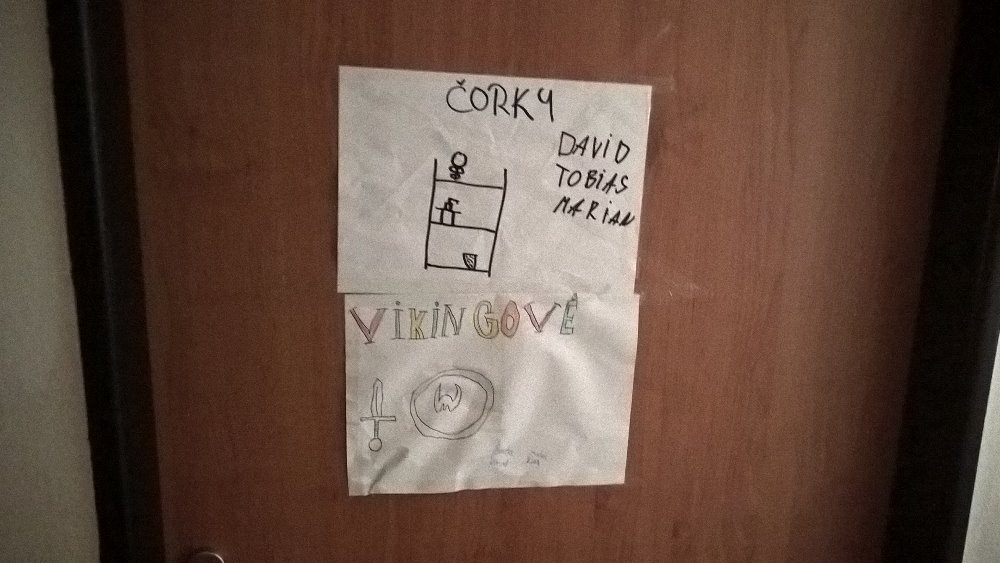 ČORKY
DAVID
TOBIAS
MARIAN
VIKINGOVÉ